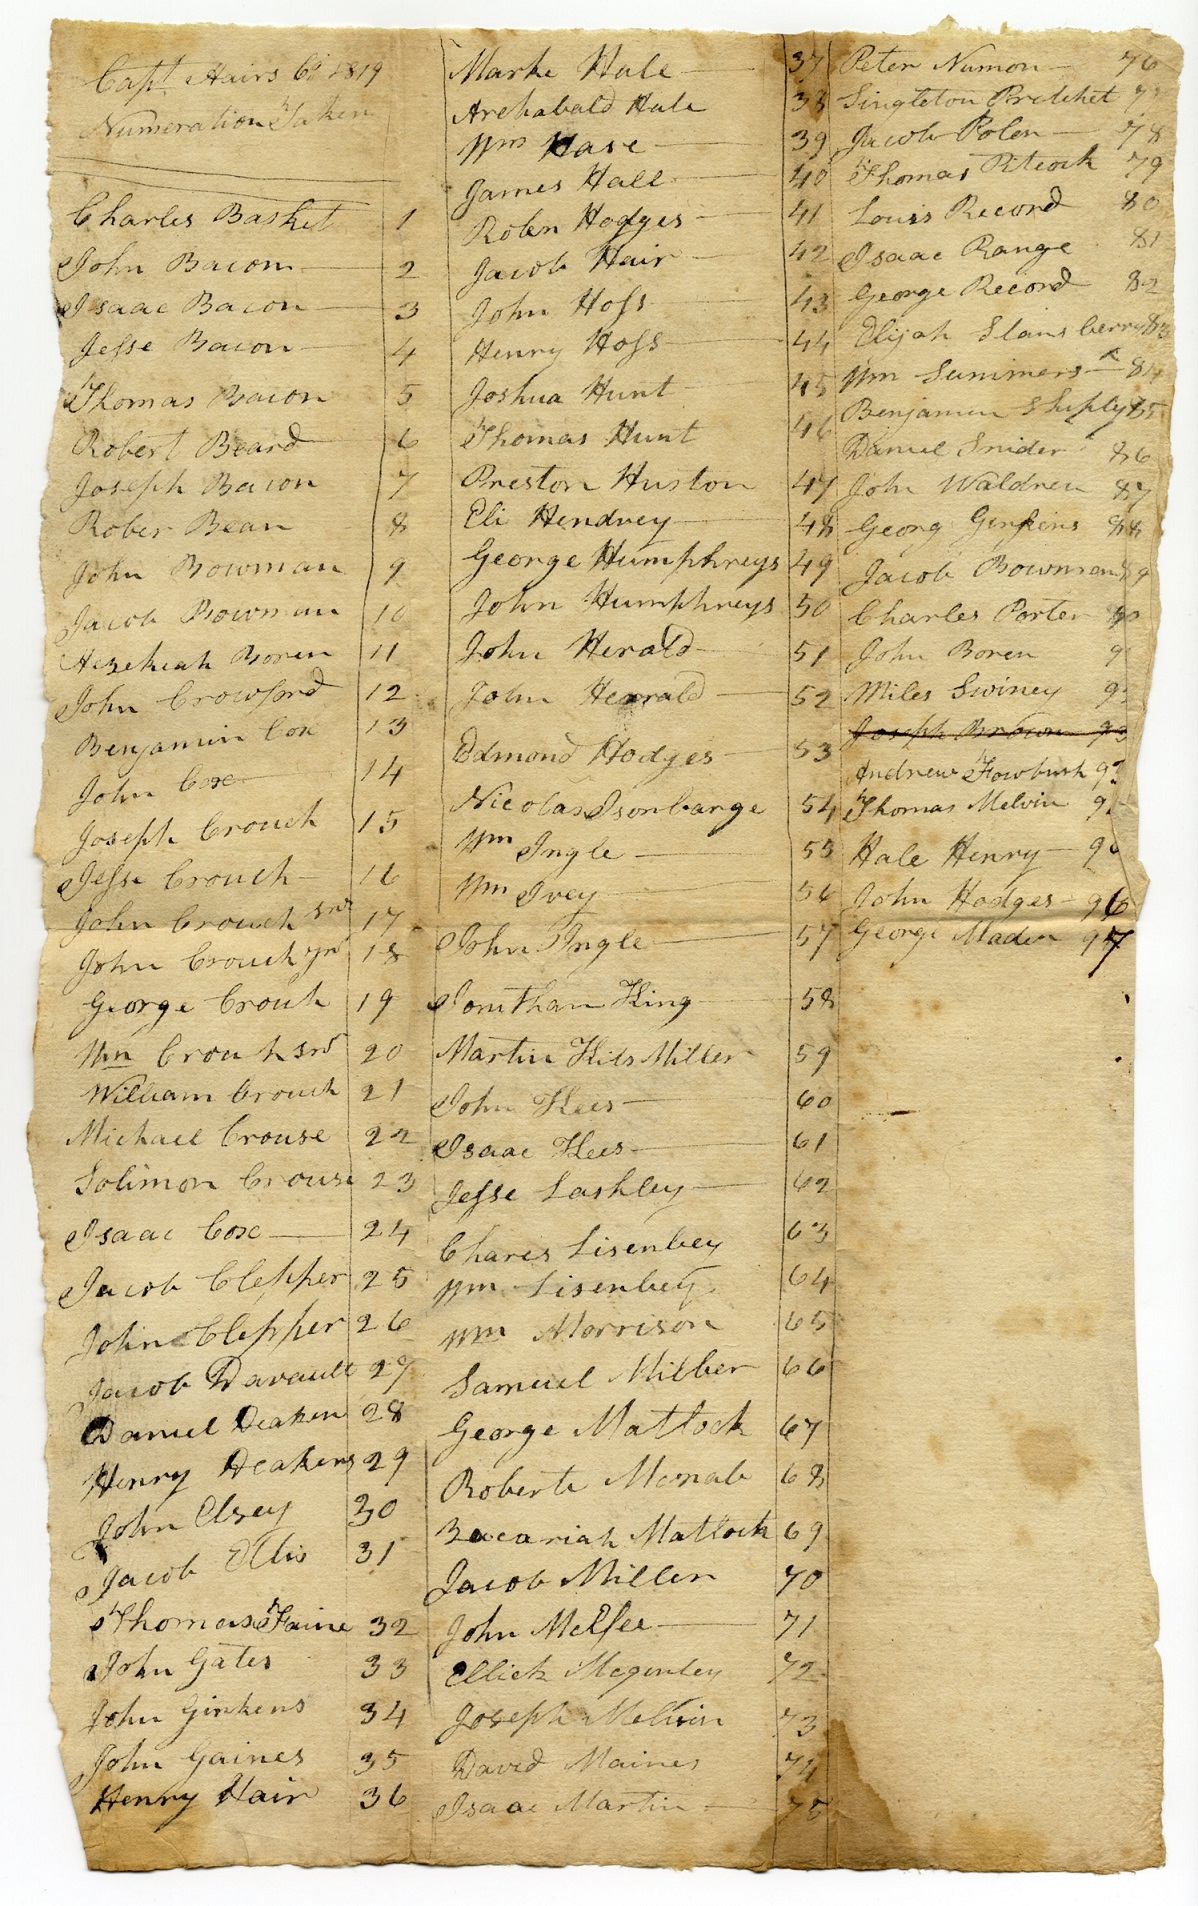 Capt Hairs Co 1819
Numeration Taken
Charles Basket 1
John Bacon 2
Isaac Bacon 3
Jesse Bacon 4
Thomas Bacon 5
Robert Beard 6
Joseph Bacon 7
Rober Bean 8
John Bowman 9
Jacob Bowman 10
Hezekiah Boren 11
John Crowford 12
Benjamin Cox 13
John Cox 14
Joseph Crouch 15
Jesse Crouch 16
John Crouch snr 17
John Crouch jnr 18
George Crouch 19
Wm Crouch snr 20
William Crouch 21
Michael Crouse 22
Solimon Crouse 23
Isaac Cox 24
Jacob Clepper 25
John Clepper 26
Jacob Davault 27
Daniel Deaken 28
Henry Deakens 29
John Elsey 30
Jacob Ellis 31
Thomas Faine 32
John Gates 33
John Ginkens 34
John Gaines 35
Henry Hair 36
Marke Hale 37
Archabald Hale 38
Wm Hase 39
James Hall 40
Roben Hodges 41
Jacob Hair 42
John Hoss 43
Henry Hoss 44
Joshua Hunt 45
Thomas Hunt 46
Preston Huston 47
Eli Hendrey 48
George Humphreys 49
John Humphreys 50
John Herald 51
John Herrald 52
Edmond Hodges 53
Nicolas Isonbarge 54
Wm Ingle 55
Wm Ivey 56
John Ingle 57
Jonithan King 58
Martin Kits Miller 59
John Kees 60
Isaac Kees 61
Jesse Lashley 62
Chares Lisenbey 63
Wm Lisenbey 64
Wm Morrison 65
Samuel Miller 66
George Matlock 67
Roberte Mcnab 68
Zacariah Matlock 69
Jacob Miller 70
John McElfee 71
Ellick Mcgenley 72
Joseph Melvin 73
David Maines 74
Isaac Martin 75
Peter Numon 76
Singleton Pretchet 77
Jacob Polen 78
Thomas Pitcock 79
Louis Record 80
Isaac Range 81
George Record 82
Elijah Stansberry 83
Wm Summers 84
Benjamin Shipley 85
Daniel Snider 86
John Waldren 87
Georg Genkens 88
Jacob Bowman 89
Charles Porter 90
John Boren 9
Miles Swiney 9
Joseph Brown 93
Andrew Fowbush 93
Thomas Melvin 9
Hale Henry 9
John Hodges 96
George Maden 97